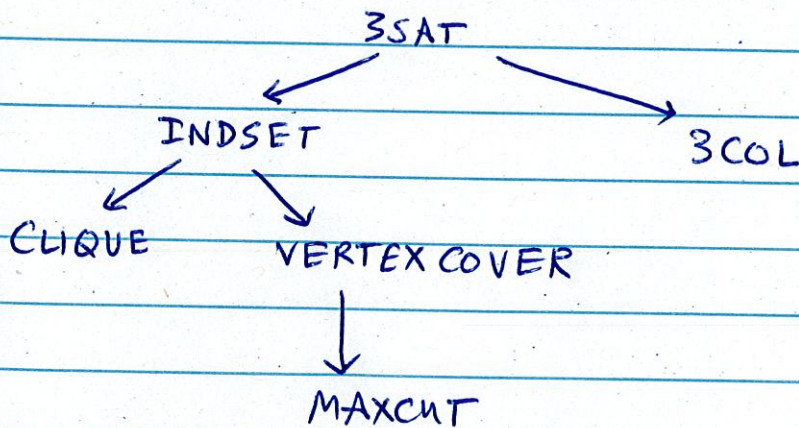 3SAT
INDSET
3COL
CLIQUE
VERTEX COVER
MAXCUT